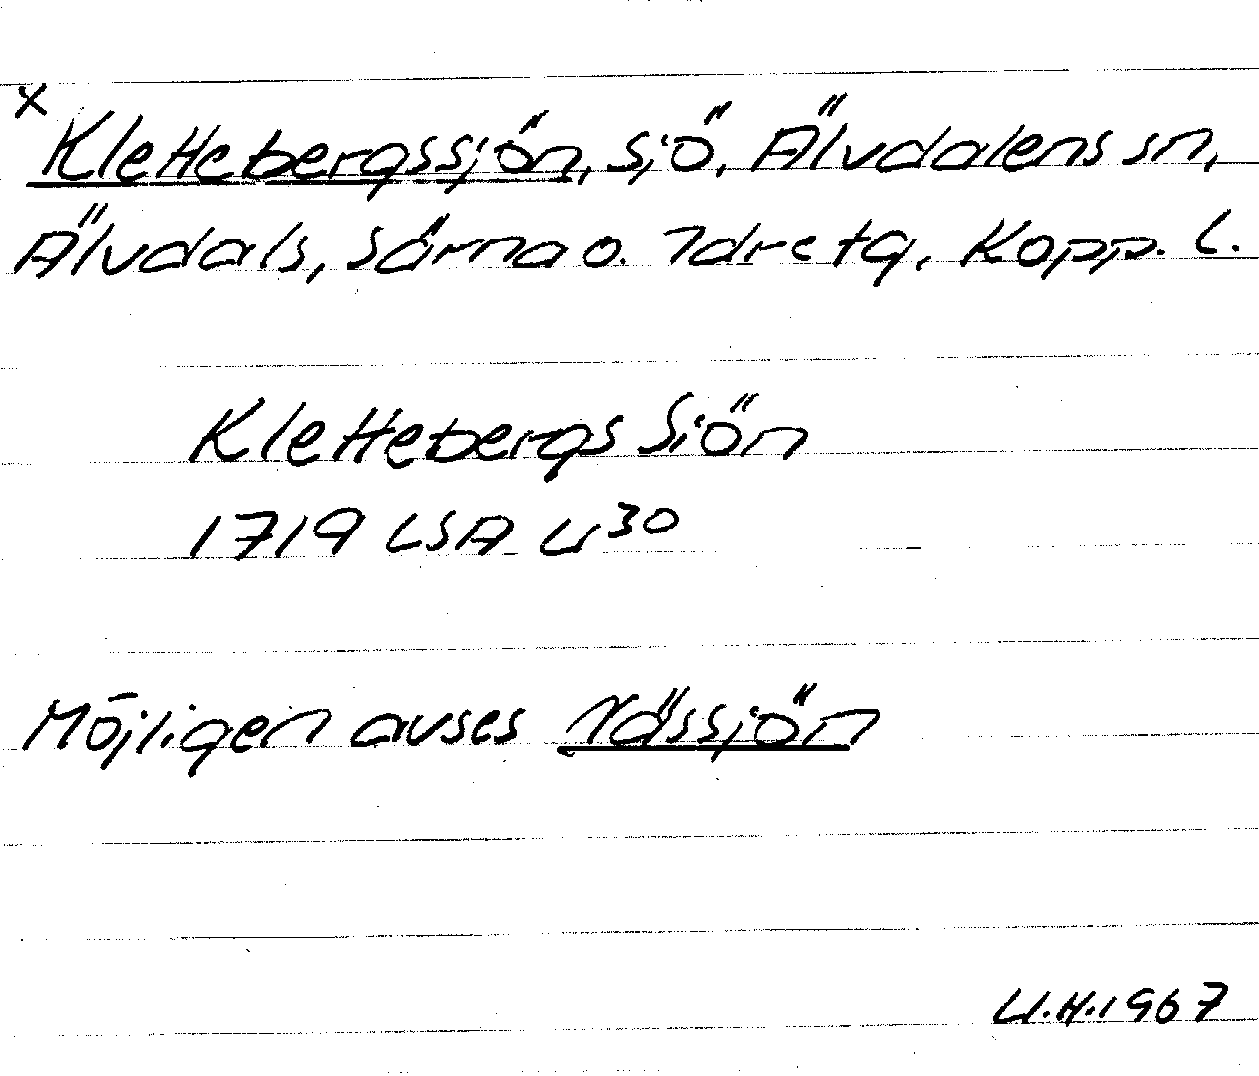 x
Klettebergssjön, sjö, Älvdalens sn,
Älvdals, Särna o. Idre tg, Kopp. l.
Klettebergs Siön
1719 LSA U³⁰
Möjligen avses Nässjön
U.H. 1967